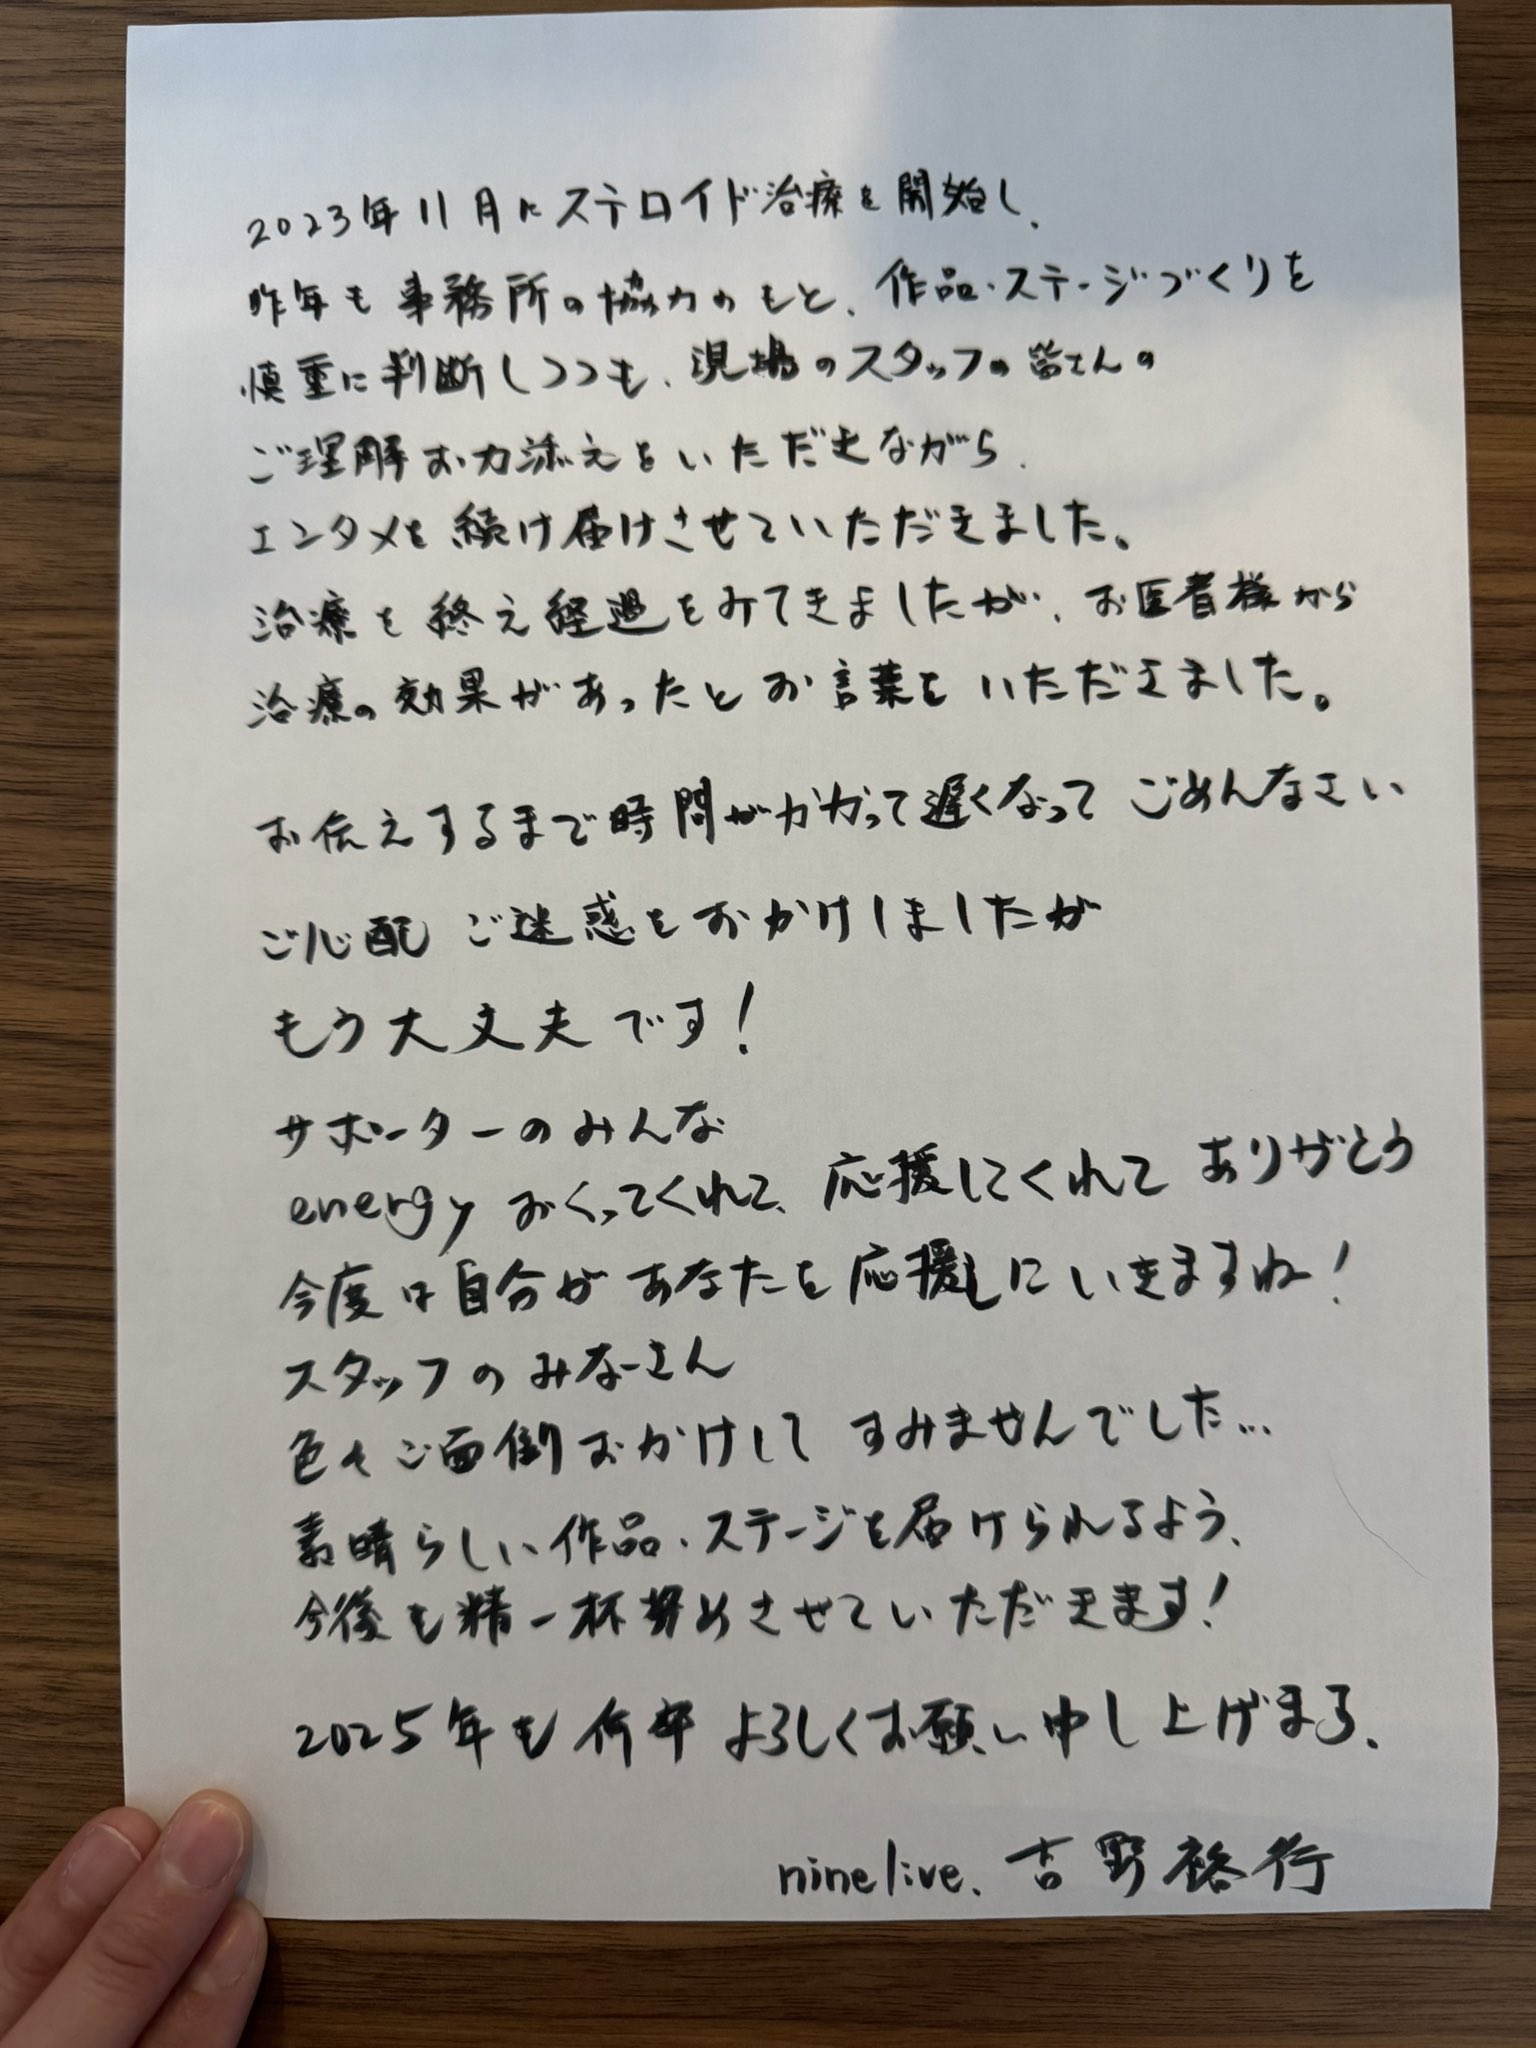 2023年11月にステロイド治療を開始し、
昨年も事務所の協力のもと、作品・ステージづくりを
慎重に判断しつつも、現場のスタッフの皆さんの
ご理解お力添えをいただきながら、
エンタメを続け届けさせていただきました。
治療を終え経過をみてきましたが、お医者様から
治療の効果があったとお言葉をいただきました。
お伝えするまで時間がかかって遅くなって ごめんなさい
ご心配 ご迷惑をおかけしましたが
もう大丈夫です!
サポーターのみんな
energyおくってくれて、応援してくれて ありがとう
今度は自分があなたを応援しにいきますね!
スタッフのみなーさん
色々ご面倒おかけして すみませんでした…
素晴らしい作品・ステージを届けられるよう、
今後も精一杯努めさせていただきます!
2025年も何卒よろしくお願い申し上げます、
ninelive、吉野裕行